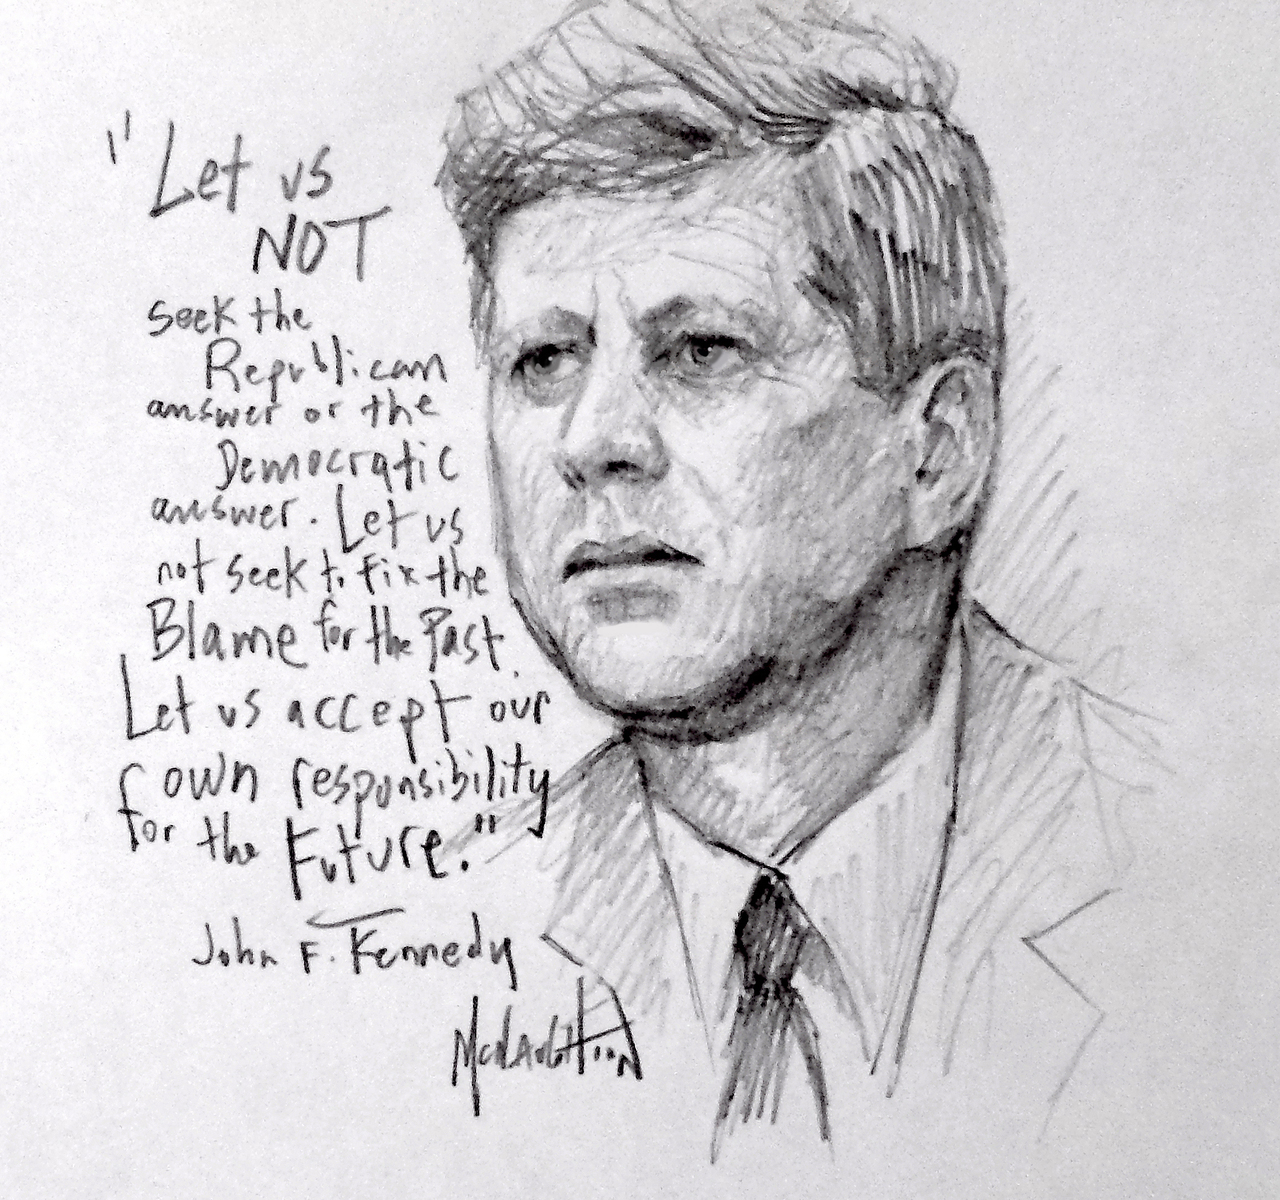 "Let us
NOT
seek the
Republican
answer or the
Democratic
answer. Let us
not seek to fix the
Blame for the Past.
Let us accept our
own responsibility
for the Future."
John F. Kennedy
McNaughton